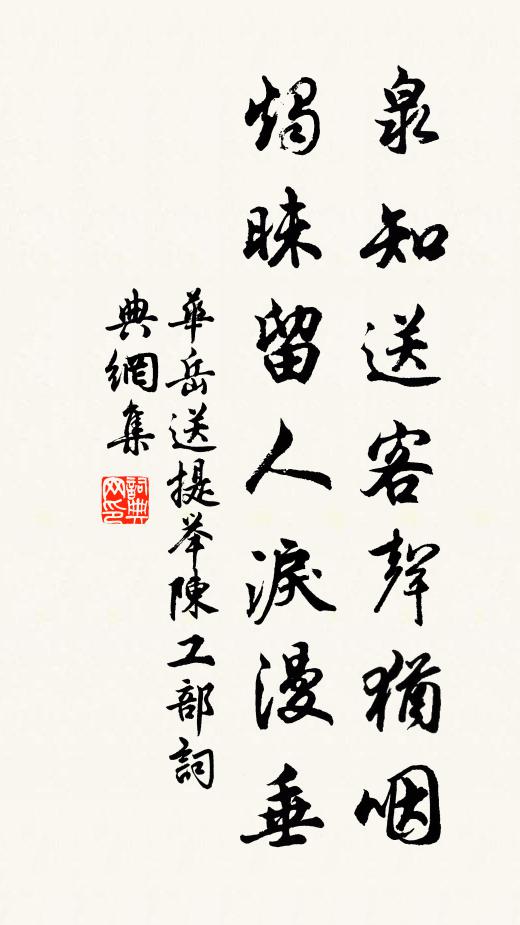 泉知送客聲猶咽
燭昧留人淚漫垂
華岳送提举陳工部詞
典網集
詞典网印